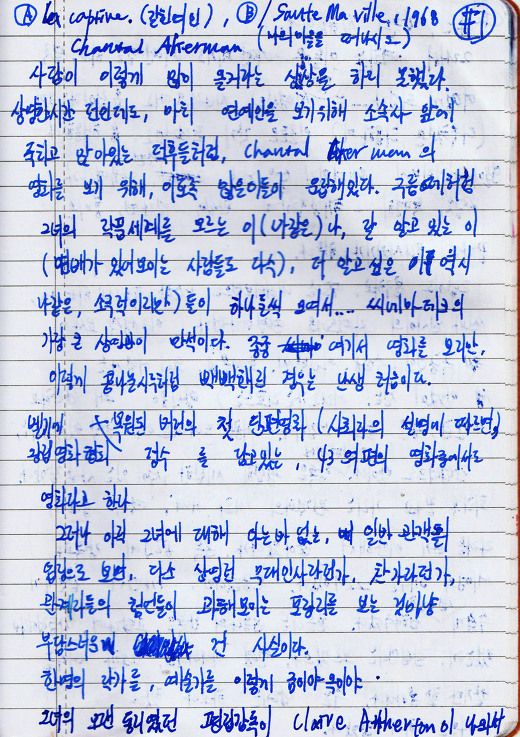 Ⓐ La captive. (갇힌여인), Ⓑ Saute Ma ville, 1968 #1
Chantal Akerman (나의 마을을 떠나시오)
사람이 이렇게 많이 올거라는 상상을 하지 못했다.
상영한시간 전인데도, 마치 연예인을 보기위해 소속사 앞에
죽치고 앉아있는 덕후들처럼, Chantal Akerman의
영화를 보기 위해, 이토록 많은이들이 운집해있다. 구름떼처럼
그녀의 작품세계를 모르는 이(나같은)나, 잘 알고 있는 이
(연배가 있어보이는 사람들도 다수), 더 알고 싶은 이 역시
나같은, 들이 하나둘씩 모여서.... 씨네마테크의
가장 큰 상영관이 만석이다. 종종 여기서 영화를 보지만,
이렇게 콩나물시루처럼 빽빽해진 경우는 난생 처음이다.
복원된 버전의 첫 단편영화 (사회자의 설명에 따르면,)
왕립영화협회 정수를 담고있는, 43여편의 영화중에서도
영화라고 한다
그러나 아직 그녀에 대해 아는바 없는, 일반 관객들
입장으로 보면, 다소 상영전 무대인사라던가, 찬가라던가,
관계자들의 헌언들이 과해보이는 포장리를 보는 것이냥
부담스러운 건 사실이다.
한명의 작가를, 예술가를 이렇게 금이야 옥이야.
그녀의 오랜 동리였던 편집감독이 Claire Atherton이 나와서